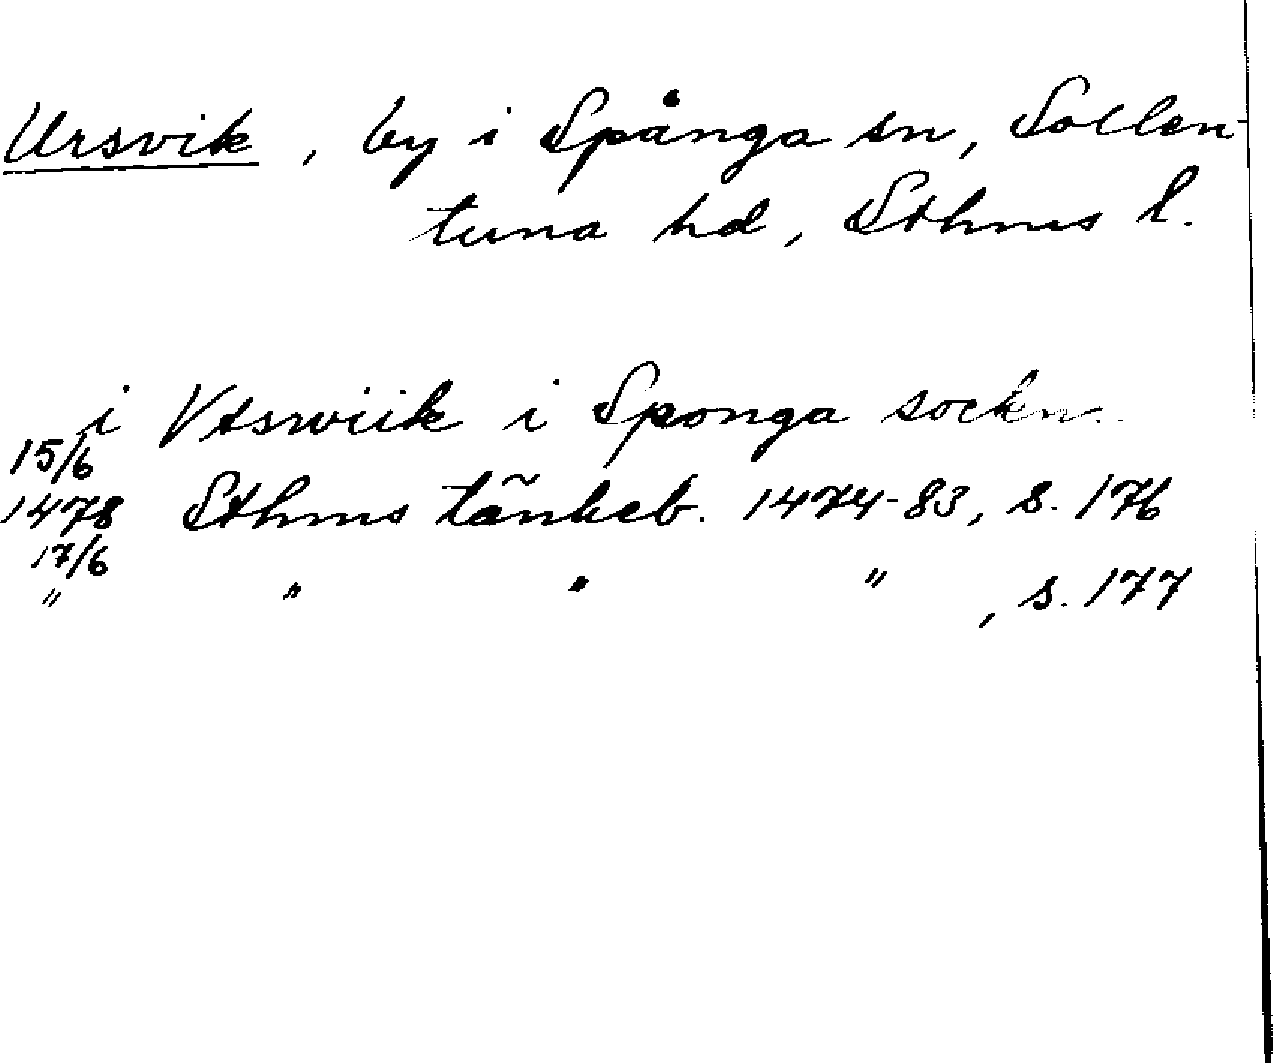 Ursvik, by i Spånga sn, Sollen-
tuna hd, Sthms l.
i Vtsrwiik i Sponga sockn.
15/6
1478 Sthms tänkeb. 1474-83, s. 176
17/6
" " " " , s. 177